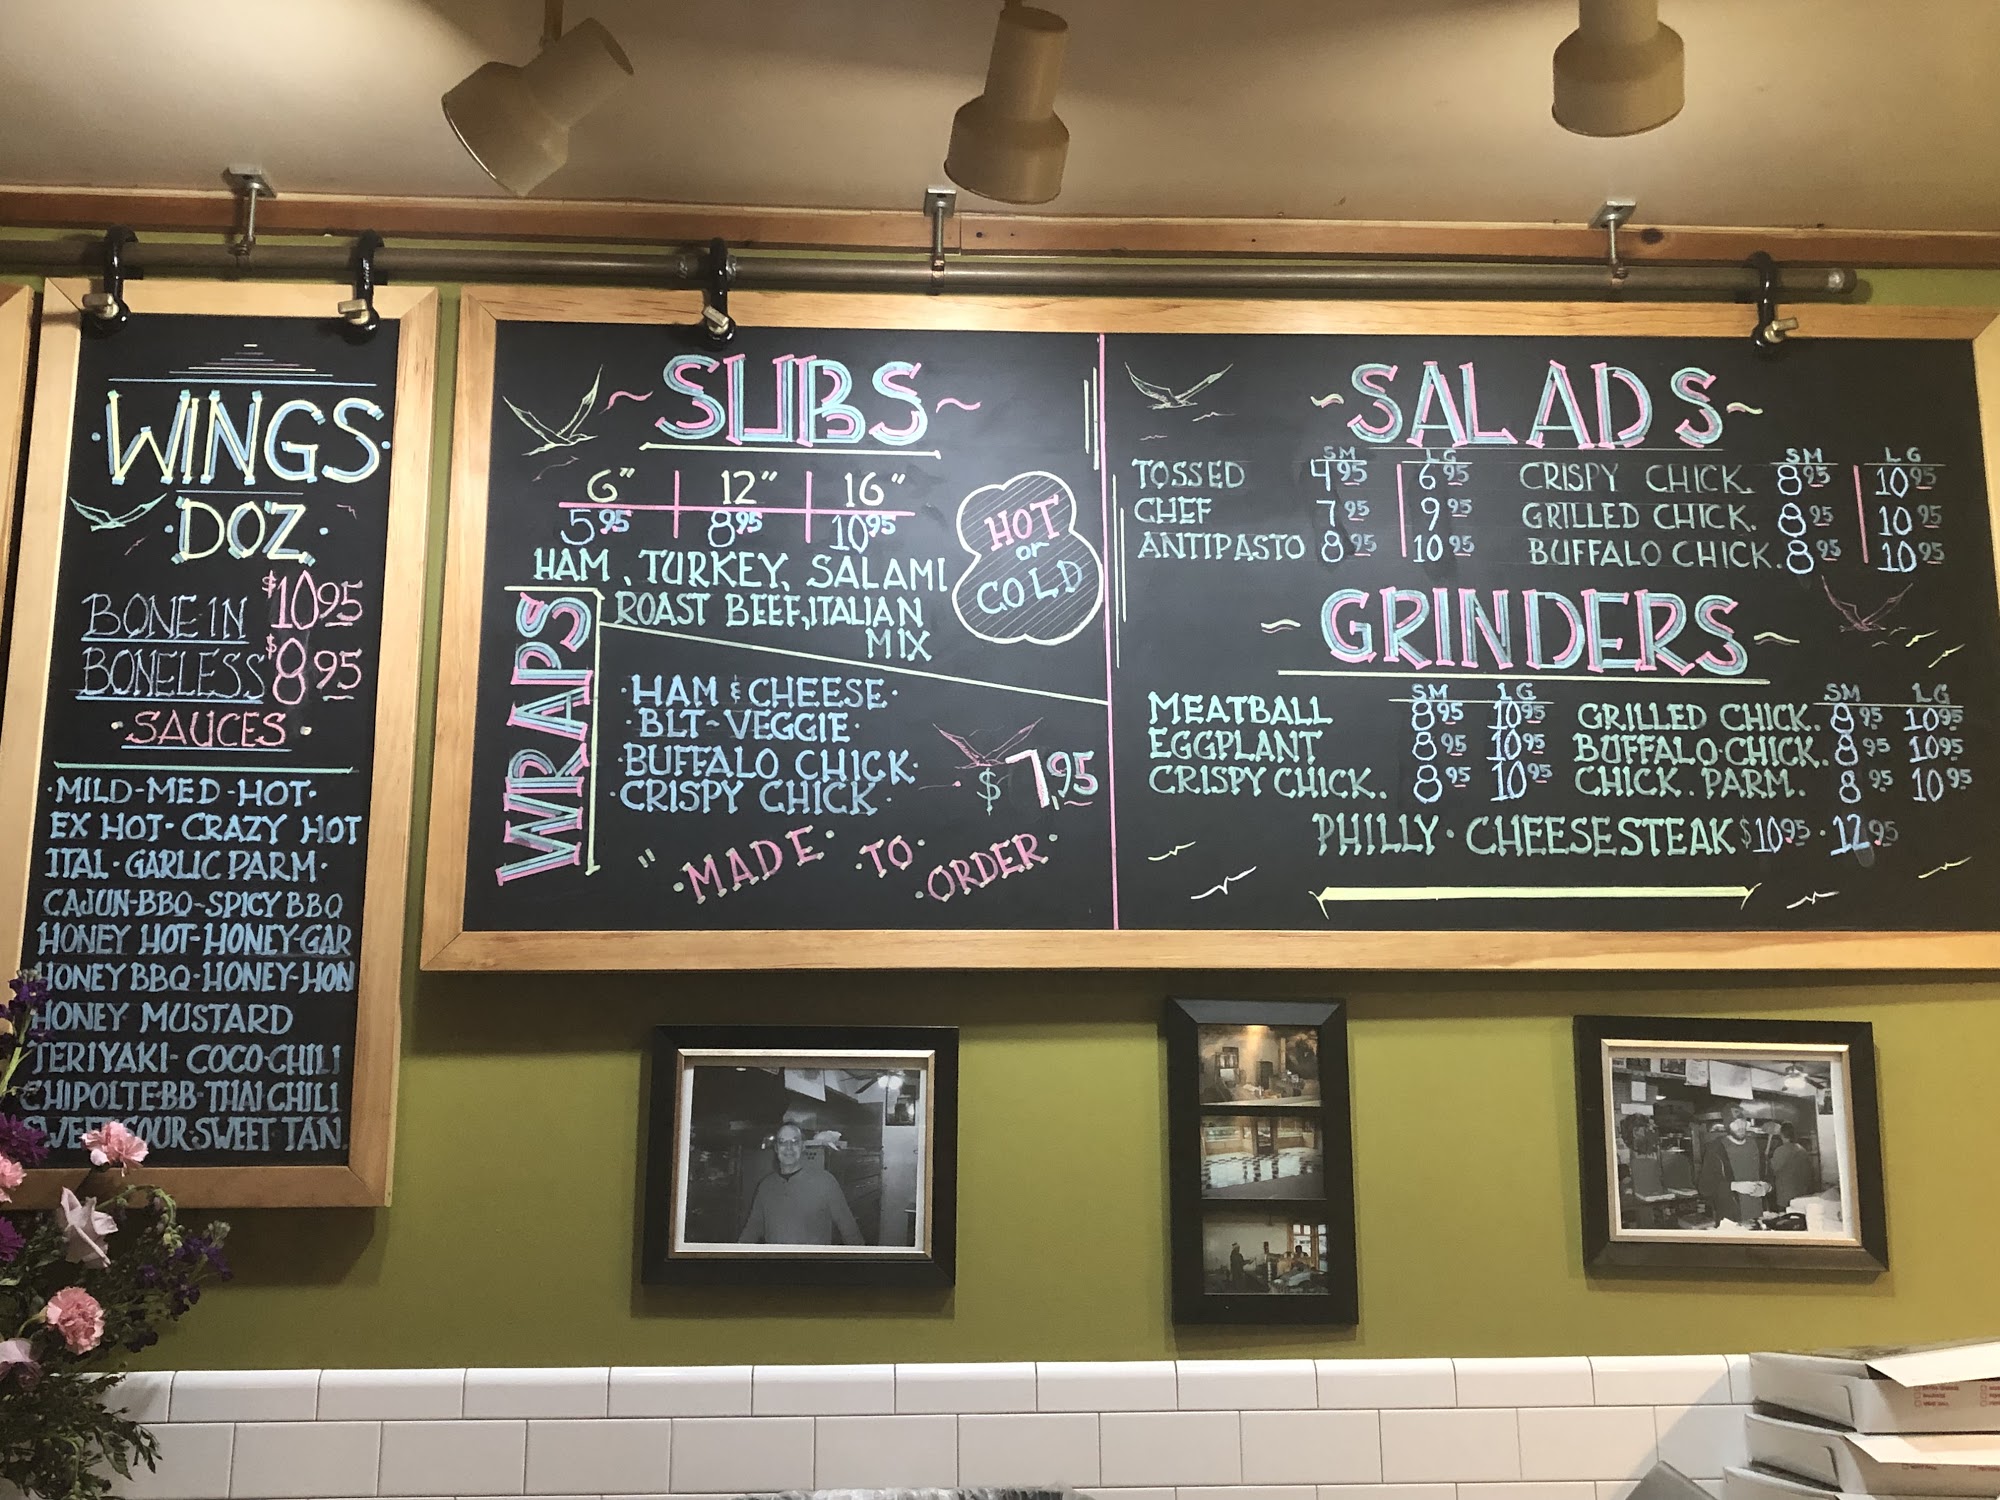 WINGS
DOZ
BONE IN $10.95
BONELESS $8.95
SAUCES
MILD-MED-HOT
EX HOT-CRAZY HOT
ITAL·GARLIC PARM·
CAJUN-BBQ-SPICY BBQ
HONEY HOT-HONEY-GAR
HONEY BBQ-HONEY-HON
HONEY MUSTARD
TERIYAKI- COCO-CHILI
CHIPOLTE BB-THAI CHILI
SWEET SOUR·SWEET TAN.
~SUBS~
6" 12" 16"
5.95 8.95 10.95
HAM, TURKEY, SALAMI
ROAST BEEF, ITALIAN
MIX
HOT
or
COLD
WRAPS
·HAM & CHEESE·
·BLT-VEGGIE·
·BUFFALO CHICK·
·CRISPY CHICK·
$7.95
"·MADE·TO·
·ORDER·
~SALADS~
SM LG SM LG
TOSSED 4.95 6.95 CRISPY CHICK. 8.95 10.95
CHEF 7.95 9.95 GRILLED CHICK. 8.95 10.95
ANTIPASTO 8.95 10.95 BUFFALO CHICK. 8.95 10.95
~GRINDERS~
SM LG SM LG
MEATBALL 8.95 10.95 GRILLED CHICK. 8.95 10.95
EGGPLANT 8.95 10.95 BUFFALO·CHICK. 8.95 10.95
CRISPY CHICK. 8.95 10.95 CHICK. PARM. 8.95 10.95
PHILLY·CHEESESTEAK $10.95·12.95